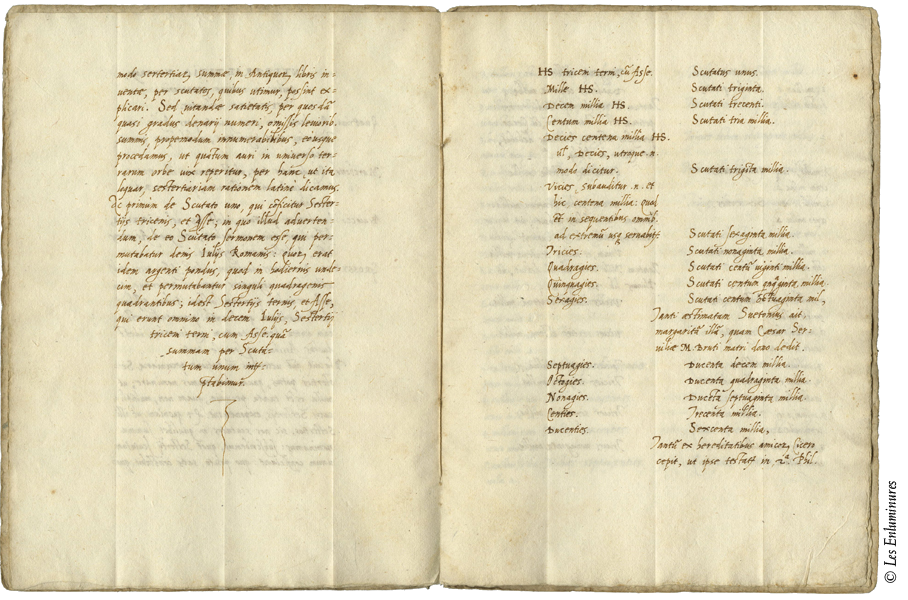 modo sestertiar, summæ, in Antiquor, libris in-
ventæ, per scutatos, quibus utimur, possint ex-
plicari. Sed vitandæ satietatis, per quosdã
quasi gradus denarij numeri, omissis leviorib.
summis, propemodum innumerabilibus, eousque
procedamus, ut quãtum auri in universo ter-
rarum orbe vix reperitur, per hanc, ut ita
loquar, sestertiariam rationem latinè dicamus.
Ac primum de Scutato uno, qui cõficitur Sester-
tiis tricenis, et Asse; in quo illud adverten-
dum, de eo Scutato sermonem esse, qui per-
mutabatur denis Iulijs Romanis: quor, erat
idem argenti pondus, quod in hodiernis unde-
cim, et permutabantur singuli quadragenis
quadrantibus; idest Sestertijs ternis, et Asse,
qui erunt omnino in decem Iulijs, Sestertij
triceni terni, cum Asse. quã
summam per Scuta-
tum unum
ptabimur.
HS triceni terni, cũ Asse. Scutatus unus.
Mille HS. Scutati triginta.
Decem millia HS. Scutati trecenti.
Centum millia HS. Scutati tria millia.
Decies centena millia HS.
ul, Decies, utroque .n.
modo dicitur. Scutati trigĩta millia.
Vicies, subauditur .n. et
hic, centena millia: quod
et in sequentibus omnib.
ad extremũ usq servabit Scutati sexaginta millia.
Tricies. Scutati nonaginta millia.
Quadragies. Scutati centũ viginti millia.
Quinquagies. Scutati centum quãginta millia.
Sexagies. Scutati centum septuaginta mil,
Tanti æstimatam Suetonius ait
margaritã illã, quam Cæsar Ser-
viliæ M. Bruti matri dono dedit.
Septuagies. Ducenta decem millia.
Octogies. Ducenta quadraginta millia.
Nonagies. Ducẽta septuaginta millia.
Centies. Trecenta millia.
Ducenties. Sexcenta millia,
Tantũ ex hereditatibus amicor, Cicero
cepit, ut ipse testatr in 2.ª Phil.
© Les Enluminures